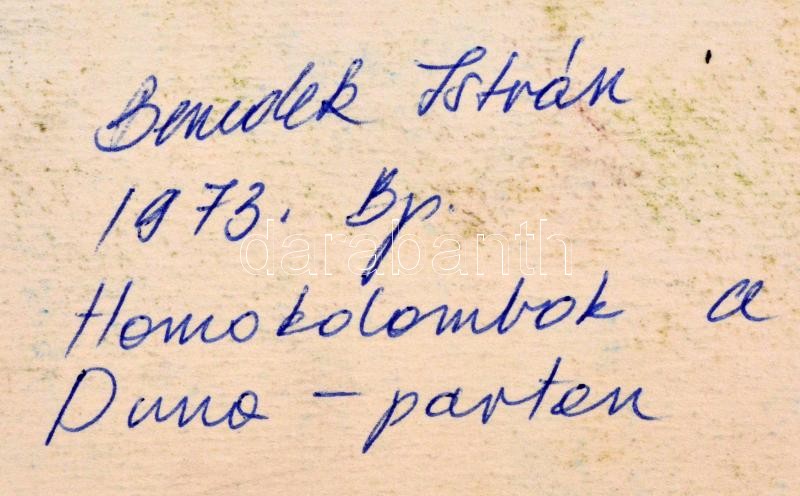 Benedek István
1973. Bp.
darabanth
Homokdombok a
Duna - parton